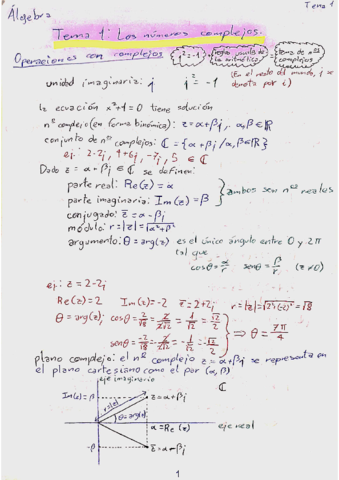 Álgebra
Tema 1
Tema 1: Los números complejos.
Operaciones con complejos
j²=-1 + reglas usuales de la aritmética = Tema de nºs complejos
unidad imaginaria: j    j² = -1
(En el resto del mundo, j se denota por i)
la ecuación x²+1=0 tiene solución
nº complejo (en forma binómica): z = α+βj, α,β∈ℝ
conjunto de nºs complejos: ℂ = {α+βj / α,β∈ℝ}
ej.: 2-2j, 1+6j, -7j, 5 ∈ ℂ
Dado z = α+βj ∈ ℂ se definen:
parte real: Re(z) = α
parte imaginaria: Im(z) = β
ambos son nºs reales
conjugado: z̄ = α-βj
módulo: r=|z|=√(α²+β²)
argumento: θ=arg(z) es el único ángulo entre 0 y 2π
tal que
cosθ = α/r    senθ = β/r    (z≠0)
ej: z = 2-2j
Re(z)=2    Im(z)=-2    z̄=2+2j    r=|z|=√(2²+(-2)²)=√8
θ=arg(z): cosθ = 2/√8 = 2/2√2 = 1/√2 = √2/2
senθ = -2/√8 = -2/2√2 = -1/√2 = -√2/2
⇒ θ = 7π/4
plano complejo: el nº complejo z = α+βj se representa en
el plano cartesiano como el par (α,β)
eje imaginario
ℂ
Im(z)=β
z=α+βj
r=|z|
θ=arg(z)
α=Re(z)
eje real
-β
z̄=α-βj
1